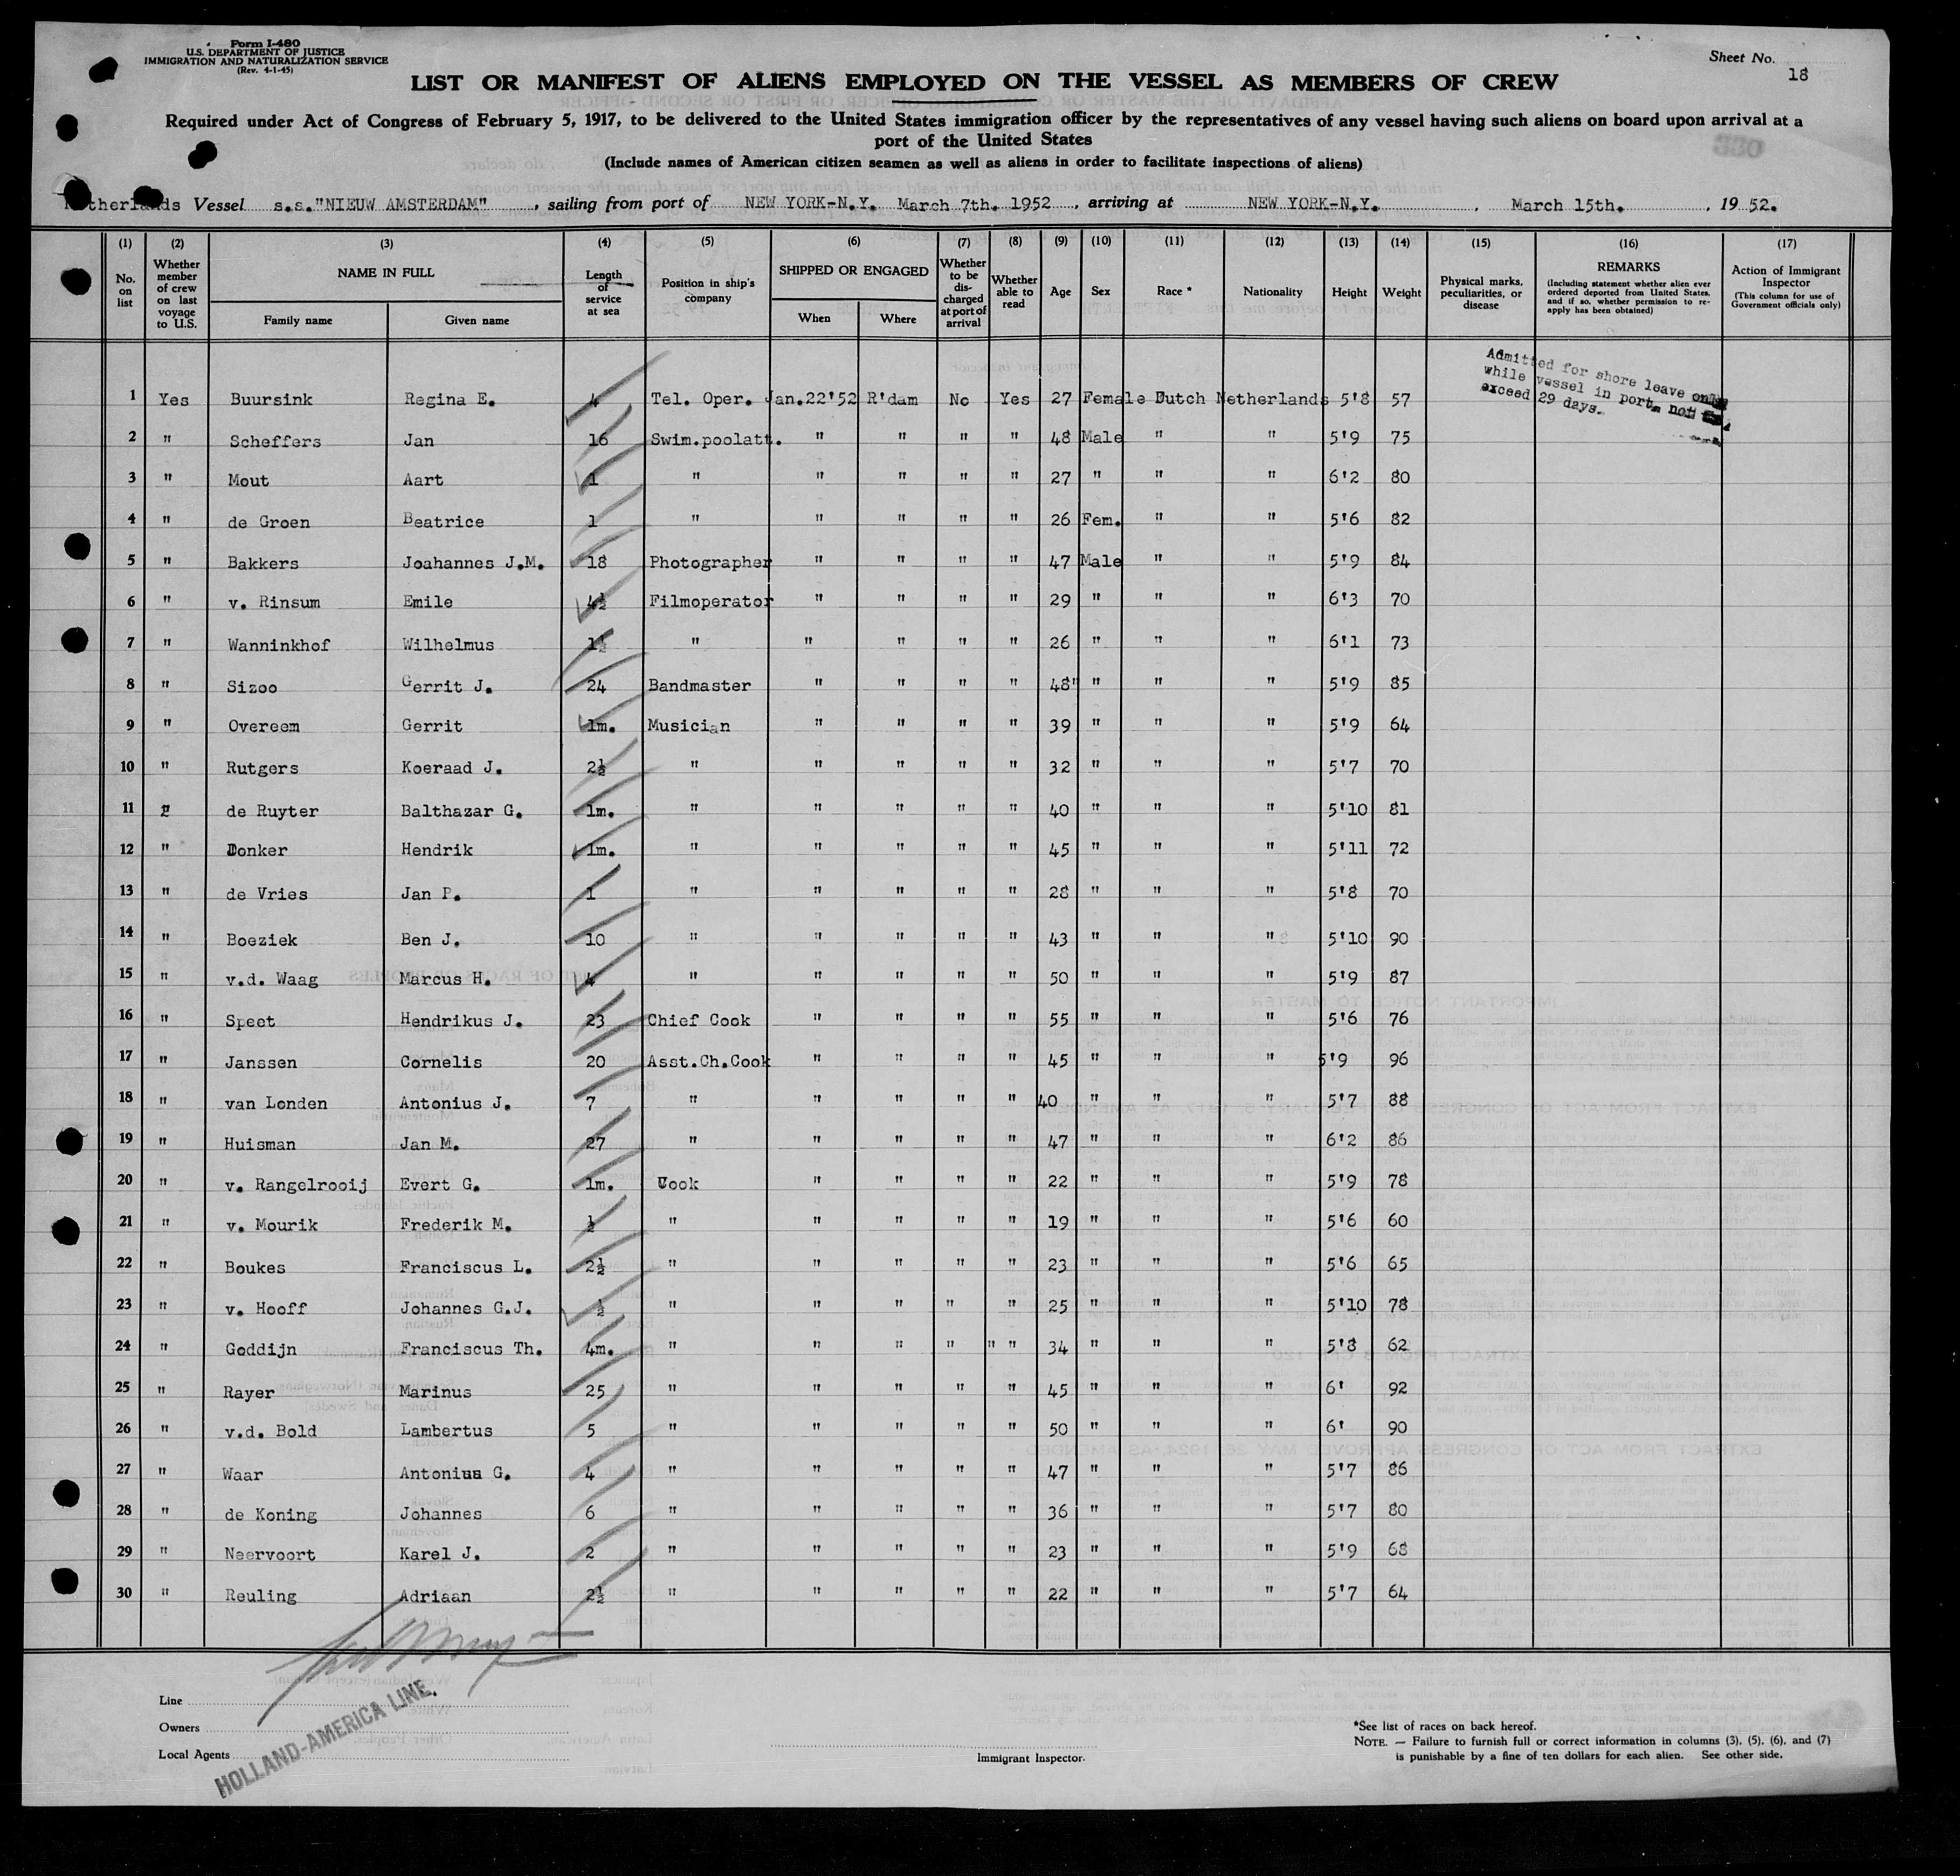 Form I-480
U.S. DEPARTMENT OF JUSTICE
IMMIGRATION AND NATURALIZATION SERVICE
(Rev. 4-1-45)
Sheet No. 18
LIST OR MANIFEST OF ALIENS EMPLOYED ON THE VESSEL AS MEMBERS OF CREW
Required under Act of Congress of February 5, 1917, to be delivered to the United States immigration officer by the representatives of any vessel having such aliens on board upon arrival at a
port of the United States
(Include names of American citizen seamen as well as aliens in order to facilitate inspections of aliens)
Netherlands Vessel s.s."NIEUW AMSTERDAM", sailing from port of NEW YORK-N.Y. March 7th. 1952, arriving at NEW YORK-N.Y., March 15th., 1952.
(1) (2) (3) (4) (5) (6) (7) (8) (9) (10) (11) (12) (13) (14) (15) (16) (17)
No. on list
Whether member of crew on last voyage to U.S.
NAME IN FULL
Family name
Given name
Length of service at sea
Position in ship's company
SHIPPED OR ENGAGED
When
Where
Whether to be discharged at port of arrival
Whether able to read
Age
Sex
Race *
Nationality
Height
Weight
Physical marks, peculiarities, or disease
REMARKS
(Including statement whether alien ever ordered deported from United States, and if so, whether permission to re-apply has been obtained)
Action of Immigrant Inspector
(This column for use of Government officials only)
Admitted for shore leave only
while vessel in port, not
exceed 29 days.
1 Yes Buursink Regina E. 4 Tel. Oper. Jan.22'52 R'dam No Yes 27 Female Dutch Netherlands 5'8 57
2 " Scheffers Jan 16 Swim.poolatt. " " " " 48 Male " " 5'9 75
3 " Mout Aart 1 " " " " " 27 " " " 6'2 80
4 " de Groen Beatrice 1 " " " " " 26 Fem. " " 5'6 82
5 " Bakkers Joahannes J.M. 18 Photographer " " " " 47 Male " " 5'9 84
6 " v. Rinsum Emile 4½ Filmoperator " " " " 29 " " " 6'3 70
7 " Wanninkhof Wilhelmus 1½ " " " " " 26 " " " 6'1 73
8 " Sizoo Gerrit J. 24 Bandmaster " " " " 48" " " " 5'9 85
9 " Overeem Gerrit 1m. Musician " " " " 39 " " " 5'9 64
10 " Rutgers Koeraad J. 2½ " " " " " 32 " " " 5'7 70
11 " de Ruyter Balthazar G. 1m. " " " " " 40 " " " 5'10 81
12 " Donker Hendrik 1m. " " " " " 45 " " " 5'11 72
13 " de Vries Jan P. 1 " " " " " 28 " " " 5'8 70
14 " Boeziek Ben J. 10 " " " " " 43 " " " 5'10 90
15 " v.d. Waag Marcus H. 4 " " " " " 50 " " " 5'9 87
16 " Speet Hendrikus J. 23 Chief Cook " " " " 55 " " " 5'6 76
17 " Janssen Cornelis 20 Asst.Ch.Cook " " " " 45 " " " 5'9 96
18 " van Londen Antonius J. 7 " " " " " 40 " " " 5'7 88
19 " Huisman Jan M. 27 " " " " " 47 " " " 6'2 86
20 " v. Rangelrooij Evert G. 1m. Cook " " " " 22 " " " 5'9 78
21 " v. Mourik Frederik M. ½ " " " " " 19 " " " 5'6 60
22 " Boukes Franciscus L. 2½ " " " " " 23 " " " 5'6 65
23 " v. Hooff Johannes G.J. ½ " " " " " 25 " " " 5'10 78
24 " Goddijn Franciscus Th. 4m. " " " " " " 34 " " " 5'8 62
25 " Rayer Marinus 25 " " " " " 45 " " " 6' 92
26 " v.d. Bold Lambertus 5 " " " " " 50 " " " 6' 90
27 " Waar Antonius G. 4 " " " " " 47 " " " 5'7 86
28 " de Koning Johannes 6 " " " " " 36 " " " 5'7 80
29 " Neervoort Karel J. 2 " " " " " 23 " " " 5'9 68
30 " Reuling Adriaan 2½ " " " " " 22 " " " 5'7 64
Line
Owners
Local Agents
HOLLAND-AMERICA LINE.
Immigrant Inspector.
*See list of races on back hereof.
NOTE. — Failure to furnish full or correct information in columns (3), (5), (6), and (7)
is punishable by a fine of ten dollars for each alien. See other side.